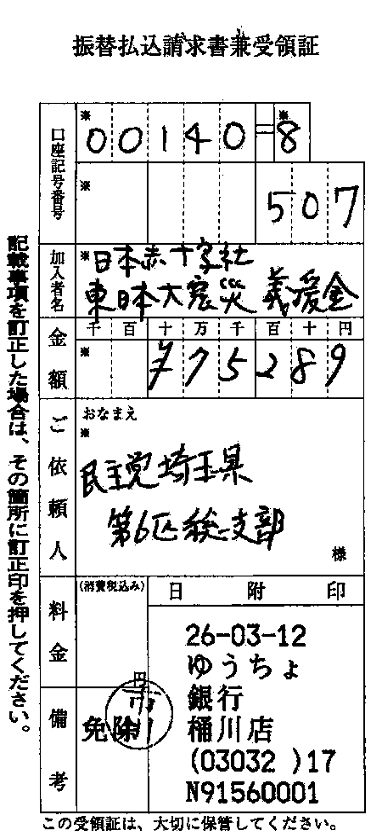 振替払込請求書兼受領証
口座記号番号
※ ※
00140=8
※
507
加入者名
※日本赤十字社
東日本大震災 義援金
金額
千 百 十 万 千 百 十 円
※
¥75289
ご依頼人
おなまえ
※
民主党埼玉県
第6区総支部
様
料金
(消費税込み)
円
備考
免除
日 附 印
26-03-12
ゆうちょ
銀行
桶川店
(03032 )17
N91560001
記載事項を訂正した場合は、その箇所に訂正印を押してください。
この受領証は、大切に保管してください。